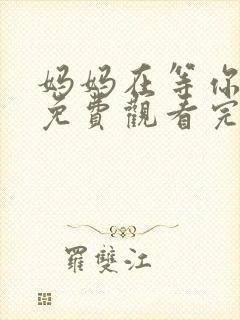 妈妈在等你
免費觀看完
羅雙江